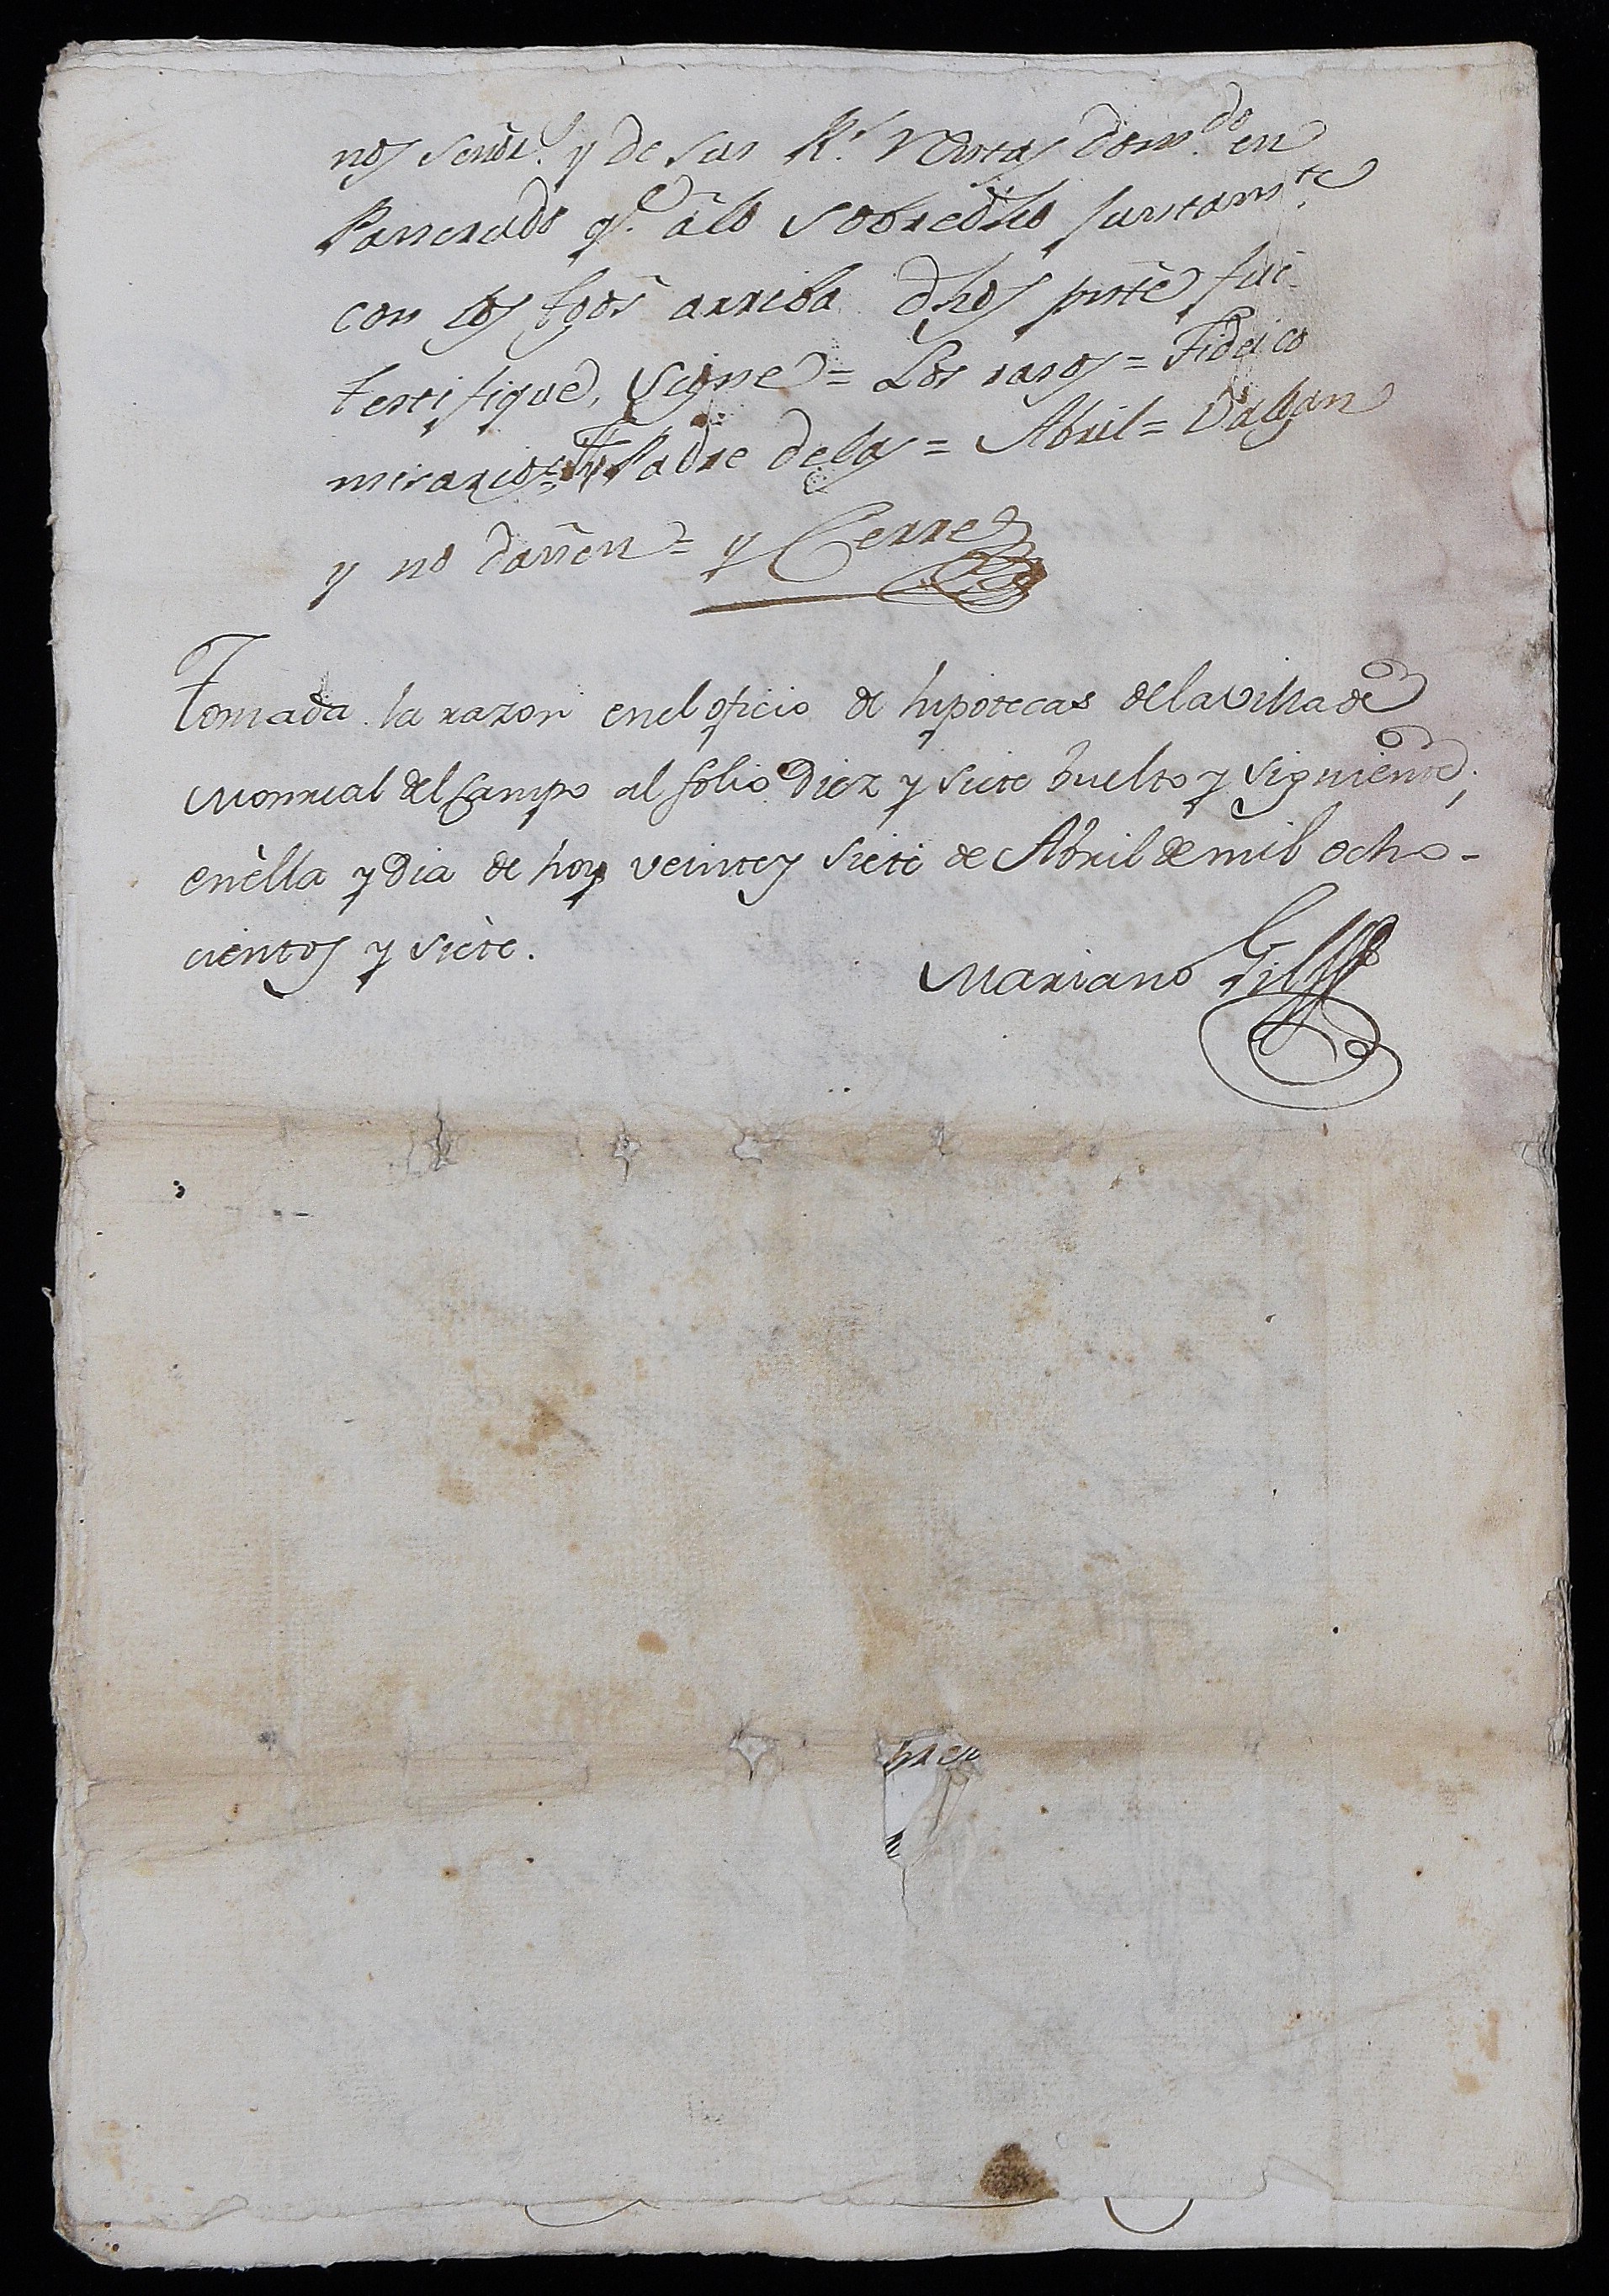 nos Señor.s y de sus R.s Rentas dom.do en
Pancrudo q.e a lo sobredho juntam.te
con los tgos arriba dhos pnte fui
testifique, signe = Los rasos = Fideico
misarios = Padre delas = Abril = Valgan
y no dañen = y Cerre
Tomada la razon enel oficio de hipotecas dela villa de
Monreal del Campo al folio Diez y siete buelto y siguiente,
en èlla y dia de hoy veinte y siete de Abril de mil ocho-
cientos y siete.
Mariano Gil